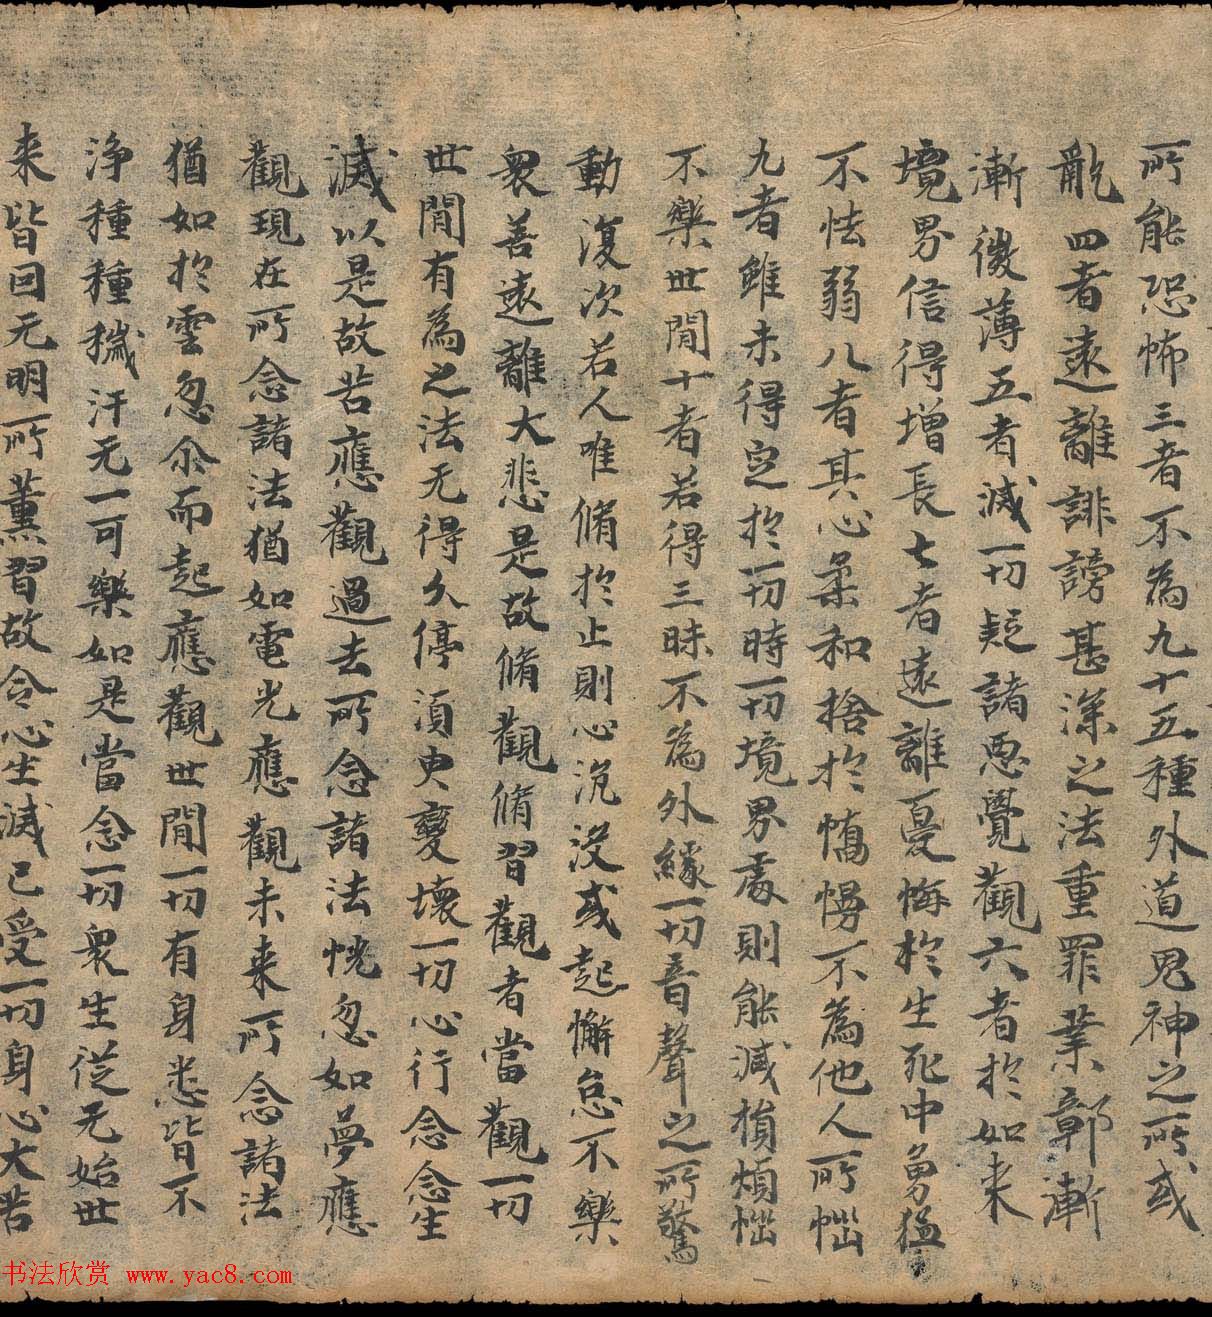 所能恐怖三者不為九十五種外道鬼神之所或
亂四者遠離誹謗甚深之法重罪業鄣漸
漸微薄五者滅一切疑諸惡覺觀六者於如来
境界信得增長七者遠離憂悔於生死中勇猛
不怯弱八者其心柔和捨於憍慢不為他人所惱
九者雖未得定於一切時一切境界處則能減損煩惱
不樂世閒十者若得三昧不為外緣一切音聲之所驚
動復次若人唯脩於止則心沉沒或起懈怠不樂
衆善遠離大悲是故脩觀脩習觀者當觀一切
世閒有為之法无得久停須臾變壞一切心行念念生
滅以是故苦應觀過去所念諸法恍忽如夢應
觀現在所念諸法猶如電光應觀未来所念諸法
猶如於雲忽尒而起應觀世閒一切有身悉皆不
淨種種穢汙无一可樂如是當念一切衆生從无始世
来皆因无明所薰習故令心生滅已受一切身心大苦
书法欣赏 www.yac8.com